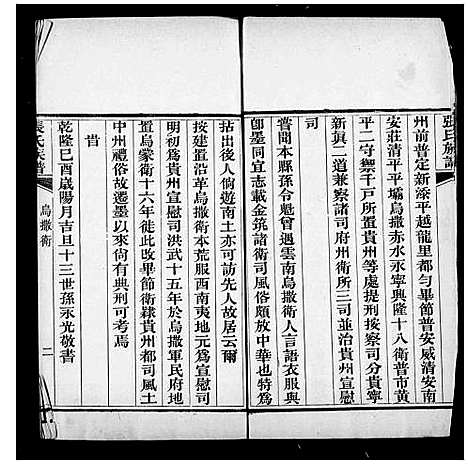 張氏族譜
州前普定新添平越龍里都勻畢節普安威清安南
安莊清平平壩烏撒赤水永寧興隆十八衛普市黃
平二守禦千戶所置貴州等處提刑按察司分貴寧
新眞二道兼察諸司府州衛所三司並治貴州宣慰
司
嘗聞本縣孫令魁曾過雲南烏撒衛人言語衣服與
卽墨同宜志載金筑諸衛司風俗頗放中華也特爲
拈出後人倘遊南土亦可訪先人故居云爾
按建置沿革烏撒衛本荒服西南夷地元爲宣慰司
明初爲貴州宣慰司洪武十五年於烏撒軍民府地
置烏蒙衛十六年徙此改畢節衛隸貴州都司風土
中州禮俗故遷墨以來尙有典刑可考焉
昔
乾隆己酉歲陽月吉旦十三世孫永光敬書
張氏族譜
烏撒衛
二